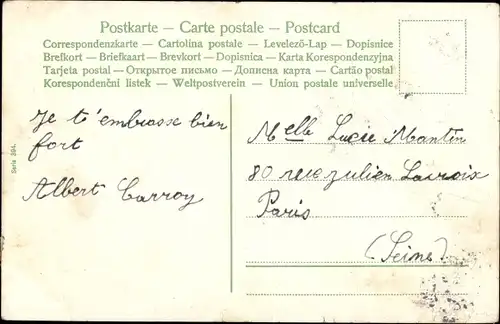 Postkarte — Carte postale — Postcard
Correspondenzkarte — Cartolina postale — Levelező-Lap — Dopisnice
Brefkort — Briefkaart — Brevkort — Dopisnica — Karta Korespondenzyjna
Tarjeta postal — Открытое письмо — Дописна карта — Cartão postal
Korespondenční listek — Weltpostverein — Union postale universelle
Je t'embrasse bien
fort
Albert Carroy
Serie 394.
Melle Lucie Mantin
80 rue Julien Lacroix
Paris
(Seine)